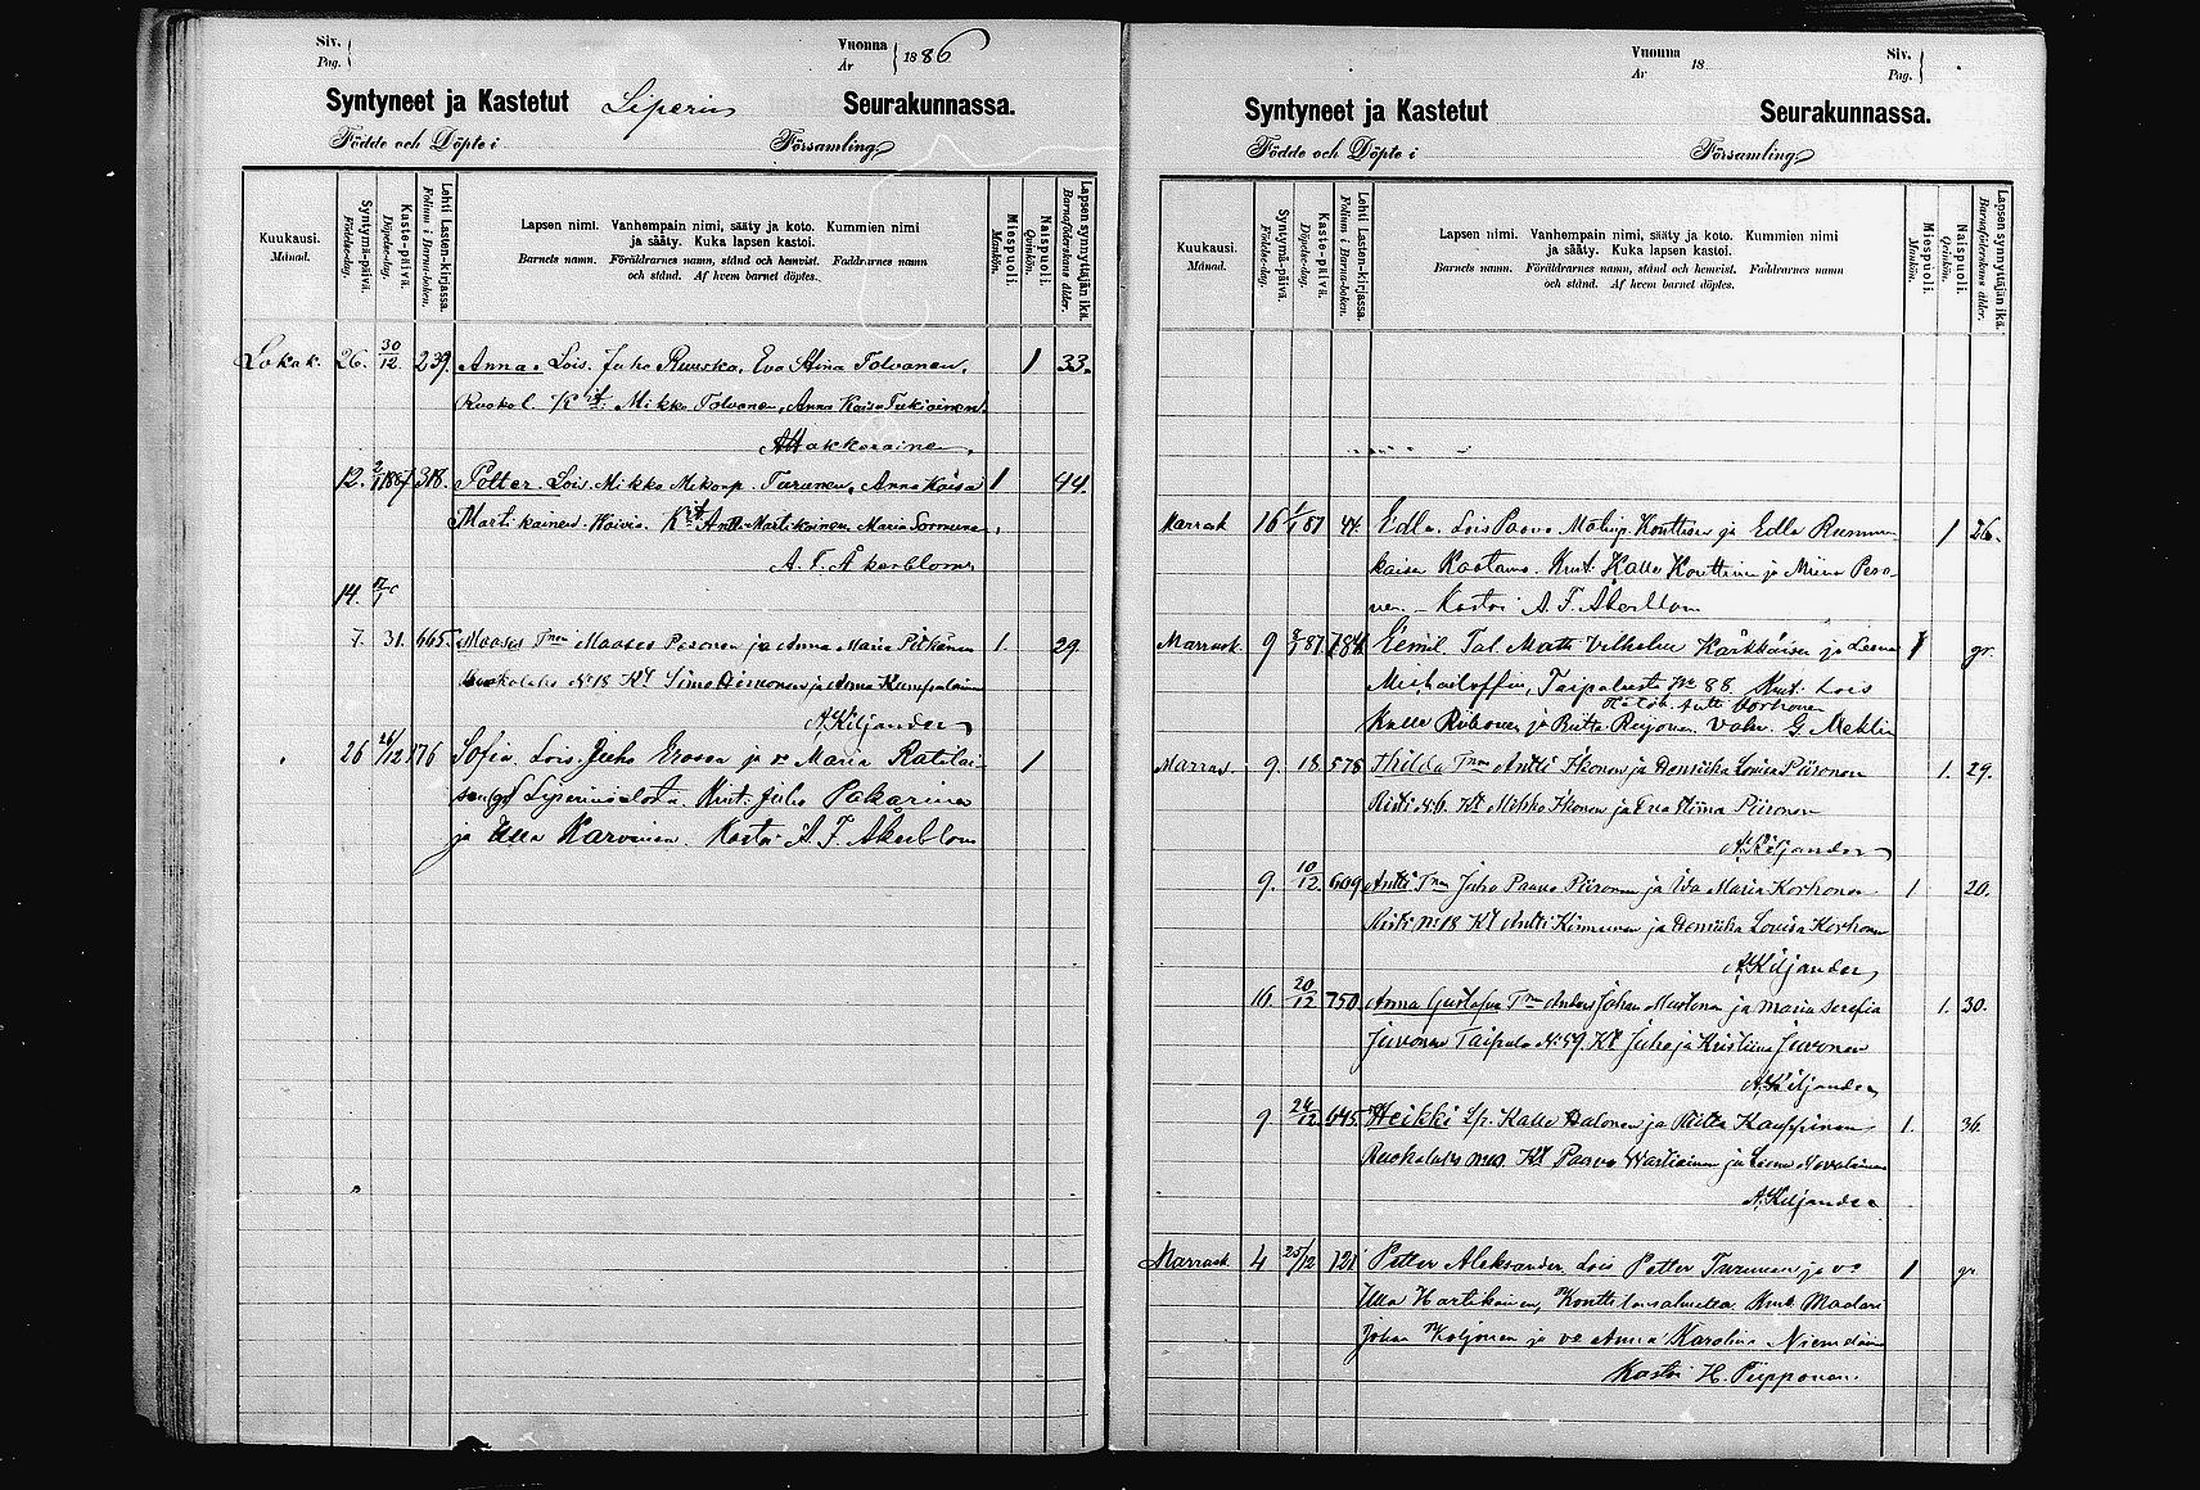 Siv.
Pag.
Vuonna
År
1886
Syntyneet ja Kastetut Liperin Seurakunnassa.
Födde och Döpte i Församling
Kuukausi.
Månad.
Syntymä-päivä.
Födelse-dag.
Kaste-päivä.
Döpelse-dag.
Lehti Lasten-kirjassa.
Folium i Barna-boken.
Lapsen nimi. Vanhempain nimi, sääty ja koto. Kummien nimi
ja sääty. Kuka lapsen kastoi.
Barnets namn. Föräldrarnes namn, stånd och hemvist. Faddrarnes namn
och stånd. Af hvem barnet döptes.
Miespuoli.
Mankön.
Naispuoli.
Qvinkön.
Lapsen synnyttäjän ikä.
Barnaföderskans ålder.
Lokak. 26. 30/12. 239. Anna. Lois. Juho Ruuska, Eva Stina Tolvanen, 1 33.
Ruokol. Kit: Mikko Tolvanen, Anna Kaisa Tukiainen.
Makkorainen.
12. 2/1 1887 318. Petter. Lois. Mikko Mikonp. Turunen, Anna Kaisa 1 44.
Martikainen. Koivis. Kit. Antti Martikainen Maria Sormunen,
A. F. Åkerblom
14.
7. 31. 665. Mooses Tnen Mooses Pesonen ja Anna Maria Pitkänen 1. 29.
Ruokolaks No 18 Kt Simo Aimonen ja Anna Kumpulainen
A. Kiljander
26 26/12 176 Sofia, Lois. Juho Erossa ja vo Maria Ratilai- 1
sen (gr) Liperinsalosta. Kut: Juho Pakarinen
ja Ulla Karvinen. Kastoi A. F. Åkerblom
Vuonna
År
18
Siv.
Pag.
Syntyneet ja Kastetut Seurakunnassa.
Födde och Döpte i Församling
Kuukausi.
Månad.
Syntymä-päivä.
Födelse-dag.
Kaste-päivä.
Döpelse-dag.
Lehti Lasten-kirjassa.
Folium i Barna-boken.
Lapsen nimi. Vanhempain nimi, sääty ja koto. Kummien nimi
ja sääty. Kuka lapsen kastoi.
Barnets namn. Föräldrarnes namn, stånd och hemvist. Faddrarnes namn
och stånd. Af hvem barnet döptes.
Miespuoli.
Mankön.
Naispuoli.
Qvinkön.
Lapsen synnyttäjän ikä.
Barnaföderskans ålder.
Marrask 16 1/1 87 44. Edla. Lois Paavo Matinp. Konttinen ja Edla Rummu- 1 26.
kaisen Kaatamo. Kut: Kalle Konttinen ja Miina Peso-
nen. – Kastoi A. F. Åkerblom
Marrask. 9 8/1 87 784 Eemil. Tal. Matti Vilhelm Kärkkäisen ja Leena 1 gr.
Michailoffin, Taipaleesta No 88. Kut: Lois
Antti Korhonen
Kalle Riikonen ja Riitta Reijonen. Vahv. G. Mehlin
Marras. 9. 18. 578 Thilda Tnen Antti Ikonen ja Henriika Lovisa Piironen 1. 29.
Risti N. 6. Kt Mikko Ikonen ja Eva Stina Piironen
A. Kiljander
9. 10/12. 609 Antti Tnen Juho Paavo Piironen ja Ida Maria Korhonen 1 20.
Risti No 18 Kt Antti Kinnunen ja Henriika Lovisa Korhonen
A. Kiljander
16. 20/12 750. Anna Gustafva Tnen Anders Johan Mustonen ja Maria Serafia 1. 30.
Juvonen Taipale No 59. Kt Juho ja Kristiina Juvonen
A. Kiljander
9. 26/12. 645. Heikki Lp. Kalle Halonen ja Riitta Kauppinen 1. 36.
Ruokolaks Kt Paavo Wartiainen ja Leena Nevalainen
A. Kiljander
Marrask. 4 25/12 121 Petter Aleksander. Lois Petter Turunen ja vo 1 gr
Ulla Hartikainen, Konttilansalmella. Kut. Maalari
Johan Koljonen ja vo Anna Karolina Niemeläinen
Kastoi H. Piipponen.